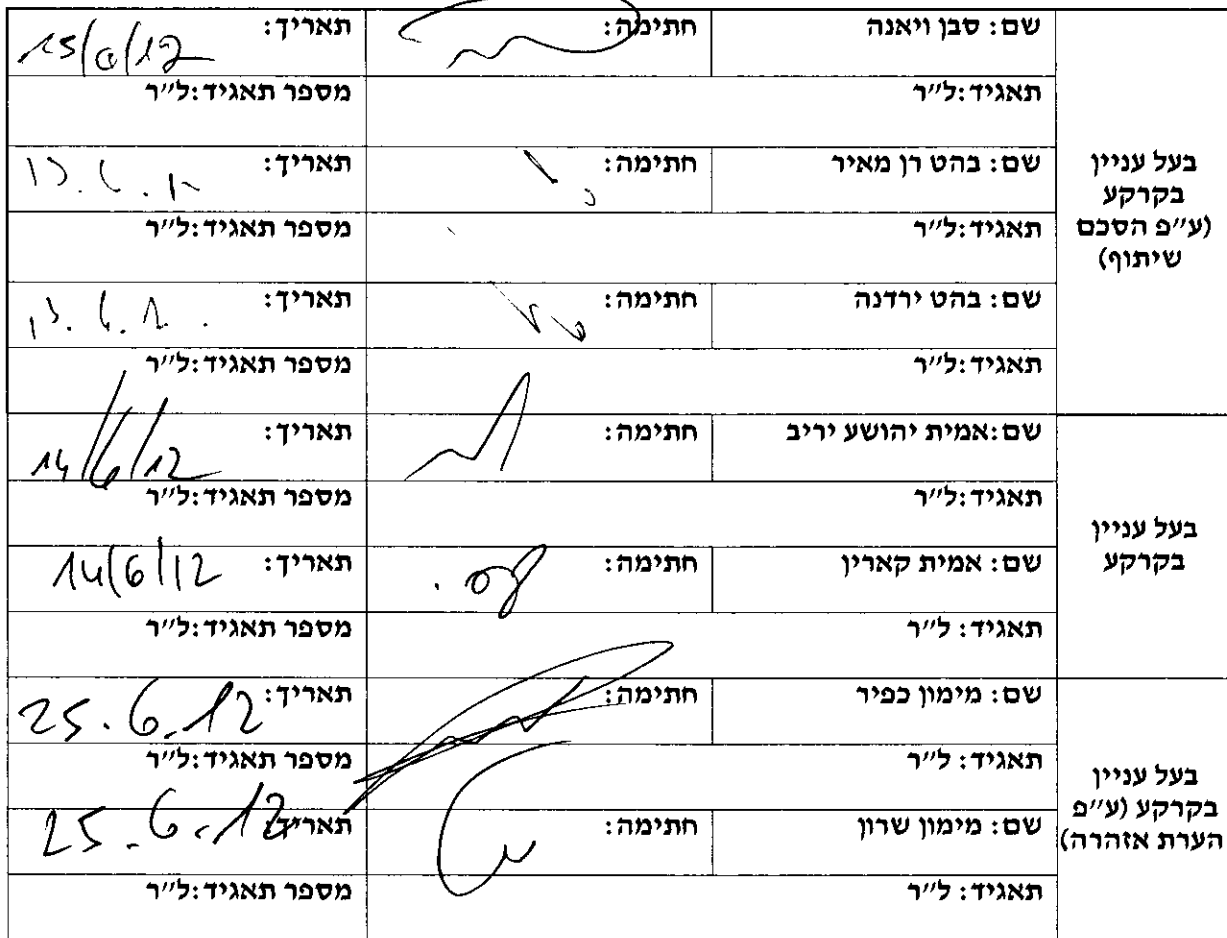 שם: סבן ויאנה חתימה: תאריך:
תאגיד:ל״ר מספר תאגיד:ל״ר
בעל עניין בקרקע (ע״פ הסכם שיתוף)
שם: בהט רן מאיר חתימה: תאריך: 13.6.12
תאגיד:ל״ר מספר תאגיד:ל״ר
שם: בהט ירדנה חתימה: תאריך: 13.6.12
תאגיד:ל״ר מספר תאגיד:ל״ר
בעל עניין בקרקע
שם:אמית יהושע יריב חתימה: תאריך: 14/6/12
תאגיד:ל״ר מספר תאגיד:ל״ר
שם: אמית קארין חתימה: תאריך: 14/6/12
תאגיד: ל״ר מספר תאגיד:ל״ר
בעל עניין בקרקע (ע״פ הערת אזהרה)
שם: מימון כפיר חתימה: תאריך: 25.6.12
תאגיד: ל״ר מספר תאגיד:ל״ר
שם: מימון שרון חתימה: תאריך: 25.6.12
תאגיד: ל״ר מספר תאגיד:ל״ר